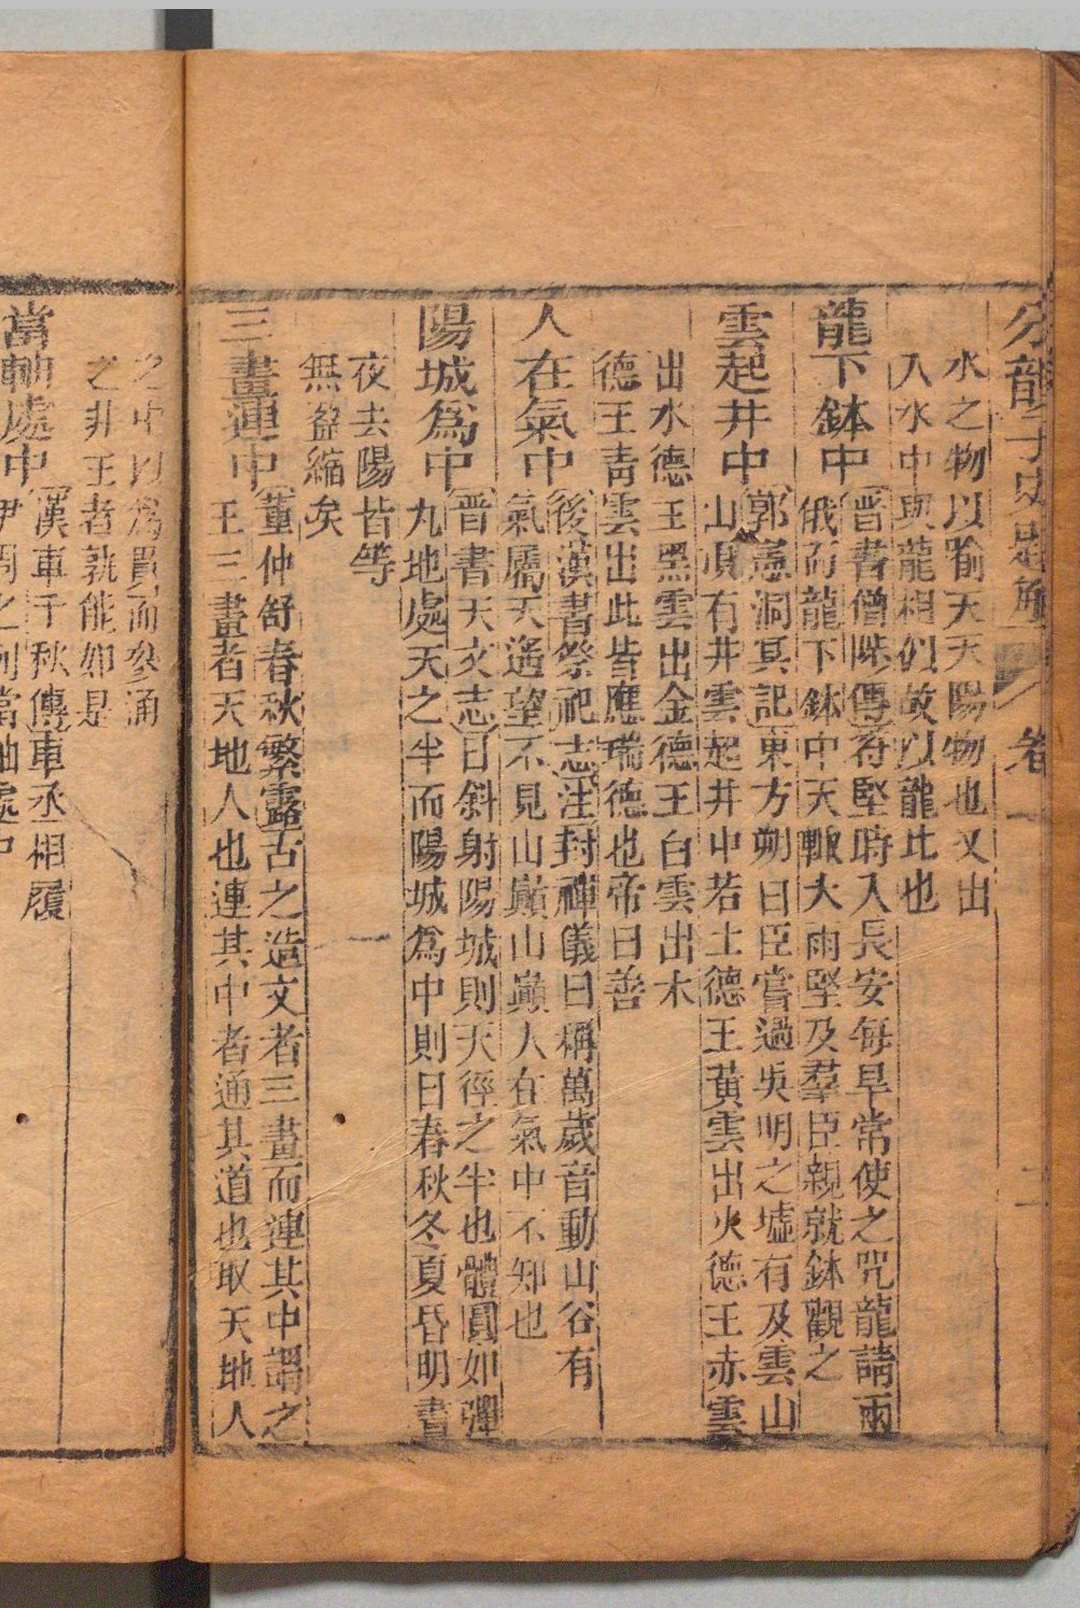 水之物以喻天天陽物也又出
入水中與龍相似故以龍比也
龍下鉢中
晋書僧涉傳苻堅時入長安每旱常使之咒龍請雨
俄而龍下鉢中天輙大雨堅及羣臣親就鉢觀之
雲起井中
郭憲洞冥記東方朔曰臣嘗過吳明之墟有及雲山
山頂有井雲起井中若土德王黃雲出火德王赤雲
出水德王黑雲出金德王白雲出木
德王靑雲出此皆應瑞德也帝曰善
人在氣中
後漢書祭祀志注封禪儀曰稱萬歲音動山谷有
氣屬天遙望不見山巔山巔人在氣中不知也
陽城爲中
晋書天文志日斜射陽城則天徑之半也體圓如彈
丸地處天之半而陽城爲中則日春秋冬夏昏明晝
夜去陽皆等
無盈縮矣
三畫連中
董仲舒春秋繁露古之造文者三畫而連其中謂之
王三畫者天地人也連其中者通其道也取天地人
之中以爲貫而參通
之非王者孰能如是
當軸處中
漢車千秋傳車丞相履
伊周之列當軸處中